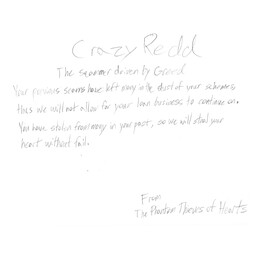 Crazy Redd
The scammer driven by Greed
Your previous scams have left many in the dust of your schemes
thus we will not allow for your loan business to continue on.
You have stolen from many in your past, so we will steal your
heart without fail.
From
The Phantom Thieves of Hearts